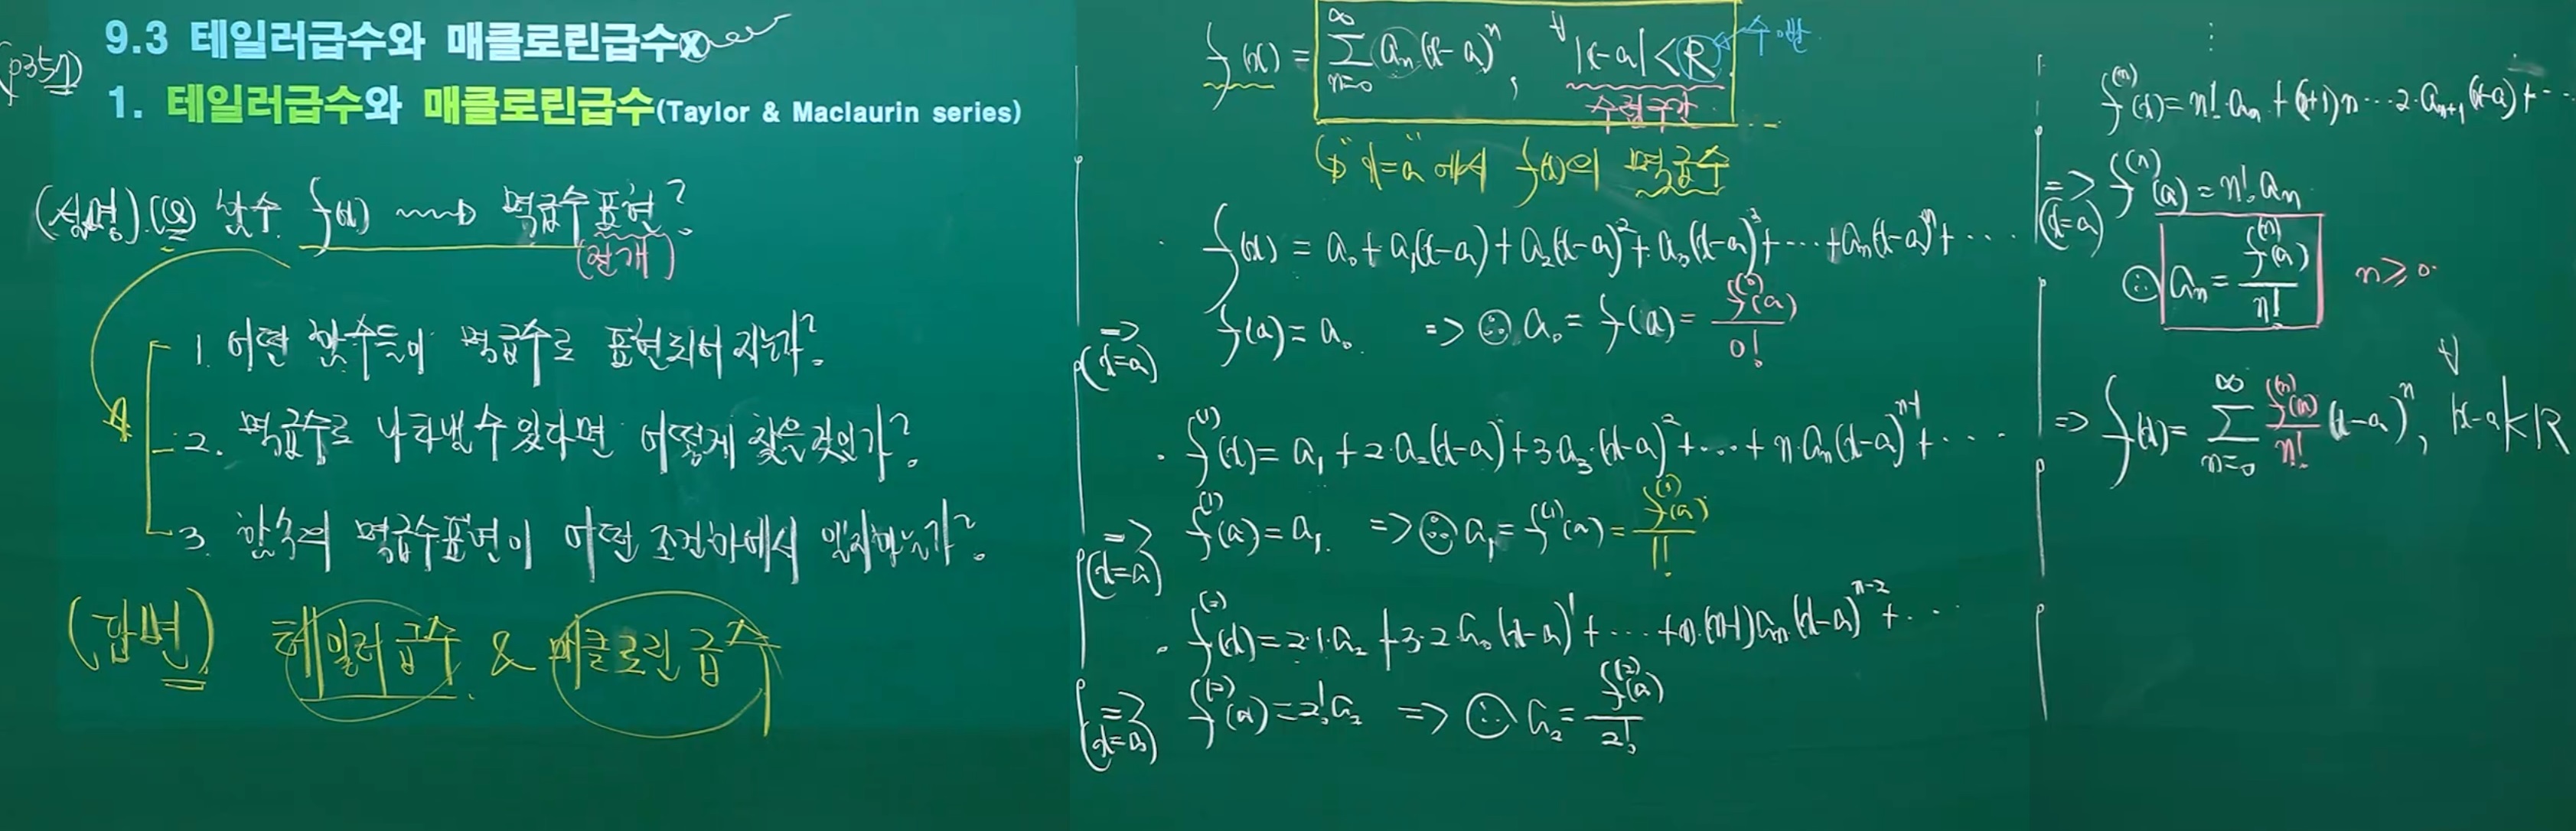 9.3 테일러급수와 매클로린급수
(p357)
1. 테일러급수와 매클로린급수(Taylor & Maclaurin series)
(설명).(Q) 함수 f(x) ⟿ 멱급수표현?
(전개)
1. 어떤 함수들이 멱급수로 표현되어 지는가?
2. 멱급수로 나타낼 수 있다면 어떻게 찾을것인가?
3. 함수의 멱급수표현이 어떤 조건하에서 일치하는가?
A
(답변) 테일러급수 & 매클로린 급수
f(x) = ∑_{n=0}^{∞} a_n (x-a)^n, ∀ |x-a| < R. ← 수.반.
수렴구간.
"x=a"에서 f(x)의 멱급수
· f(x) = a_0 + a_1(x-a) + a_2(x-a)^2 + a_3(x-a)^3 + ··· + a_n(x-a)^n + ···
=> (x=a) f(a) = a_0. => ∴ a_0 = f(a) = f^{(0)}(a)/0!
· f^{(1)}(x) = a_1 + 2·a_2(x-a) + 3·a_3·(x-a)^2 + ··· + n·a_n(x-a)^{n-1} + ···
=> (x=a) f^{(1)}(a) = a_1. => ∴ a_1 = f^{(1)}(a) = f^{(1)}(a)/1!
· f^{(2)}(x) = 2·1·a_2 + 3·2·a_3(x-a)^1 + ··· + n·(n-1)a_n(x-a)^{n-2} + ···
=> (x=a) f^{(2)}(a) = 2!a_2 => ∴ a_2 = f^{(2)}(a)/2!
⋮
f^{(n)}(x) = n!·a_n + (n+1)n···2·a_{n+1}(x-a) + ···
=> (x=a) f^{(n)}(a) = n!a_n
∴ a_n = f^{(n)}(a)/n! n≥0.
=> f(x) = ∑_{n=0}^{∞} f^{(n)}(a)/n! (x-a)^n, ∀ |x-a|<R